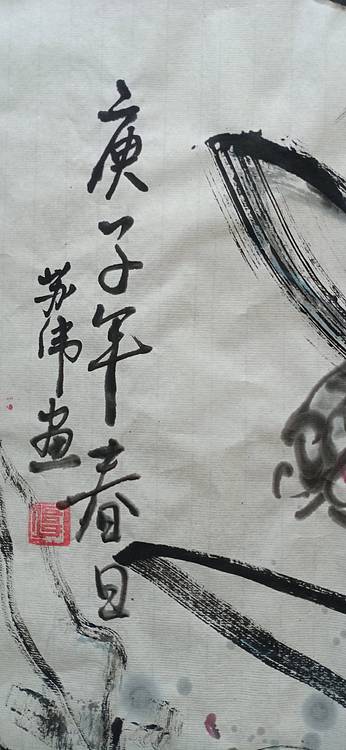 庚子年春日
苏伟画